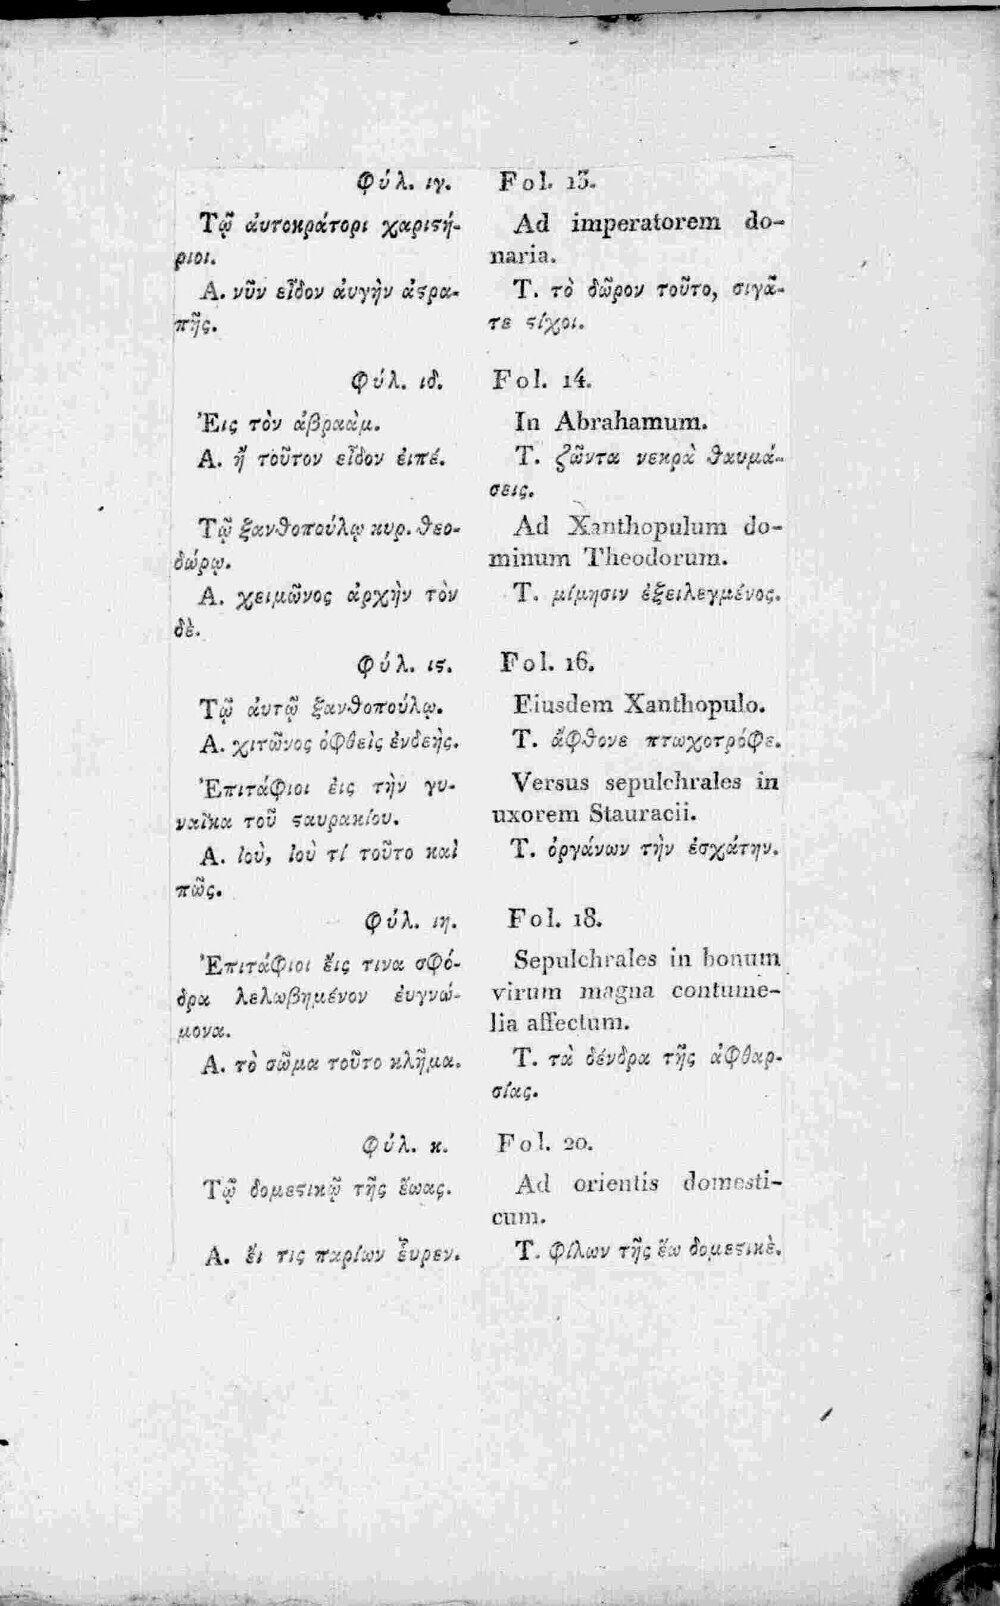 Φύλ. ιγ.
Τῷ ἀυτοκράτορι χαριϛή-
ριοι.
Α. νῦν εἶδον ἀυγὴν ἀϛρα-
πῆς.
Φύλ. ιδ.
Ἐις τὸν ἀβραὰμ.
Α. ἤ τοῦτον εἶδον ἐιπέ.
Τῷ ξανθοπούλῳ κυρ. θεο-
δώρῳ.
Α. χειμῶνος ἀρχὴν τὸν
δὲ.
Φύλ. ιϛ.
Τῷ ἀυτῷ ξανθοπούλῳ.
Α. χιτῶνος ὀφθεὶς ἐνδεὴς.
Ἐπιτάφιοι ἐις τὴν γυ-
ναῖκα τοῦ ϛαυρακίου.
Α. ἰοὺ, ἰοὺ τί τοῦτο καὶ
πῶς.
Φύλ. ιη.
Ἐπιτάφιοι ἔις τινα σφό-
δρα λελωβημένον ἐυγνώ-
μονα.
Α. τὸ σῶμα τοῦτο κλῆμα.
Φύλ. κ.
Τῷ δομεϛικῷ τῆς ἕωας.
Α. ἔι τις παρίων ἔυρεν.
Fol. 13.
Ad imperatorem do-
naria.
Τ. τὸ δῶρον τοῦτο, σιγᾶ-
τε ϛίχοι.
Fol. 14.
In Abrahamum.
Τ. ζῶντα νεκρὰ θαυμά-
σεις.
Ad Xanthopulum do-
minum Theodorum.
Τ. μίμησιν ἐξειλεγμένος.
Fol. 16.
Eiusdem Xanthopulo.
Τ. ἄφθονε πτωχοτρόφε.
Versus sepulchrales in
uxorem Stauracii.
Τ. ὀργάνων τὴν ἐσχάτην.
Fol. 18.
Sepulchrales in bonum
virum magna contume-
lia affectum.
Τ. τὰ δένδρα τῆς ἀφθαρ-
σίας.
Fol. 20.
Ad orientis domesti-
cum.
Τ. φίλων τῆς ἕω δομεϛικὲ.